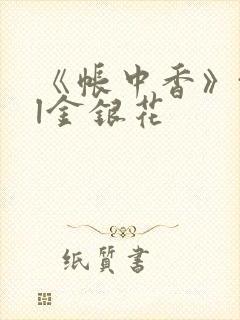 《帐中香》
l金银花
纸质书